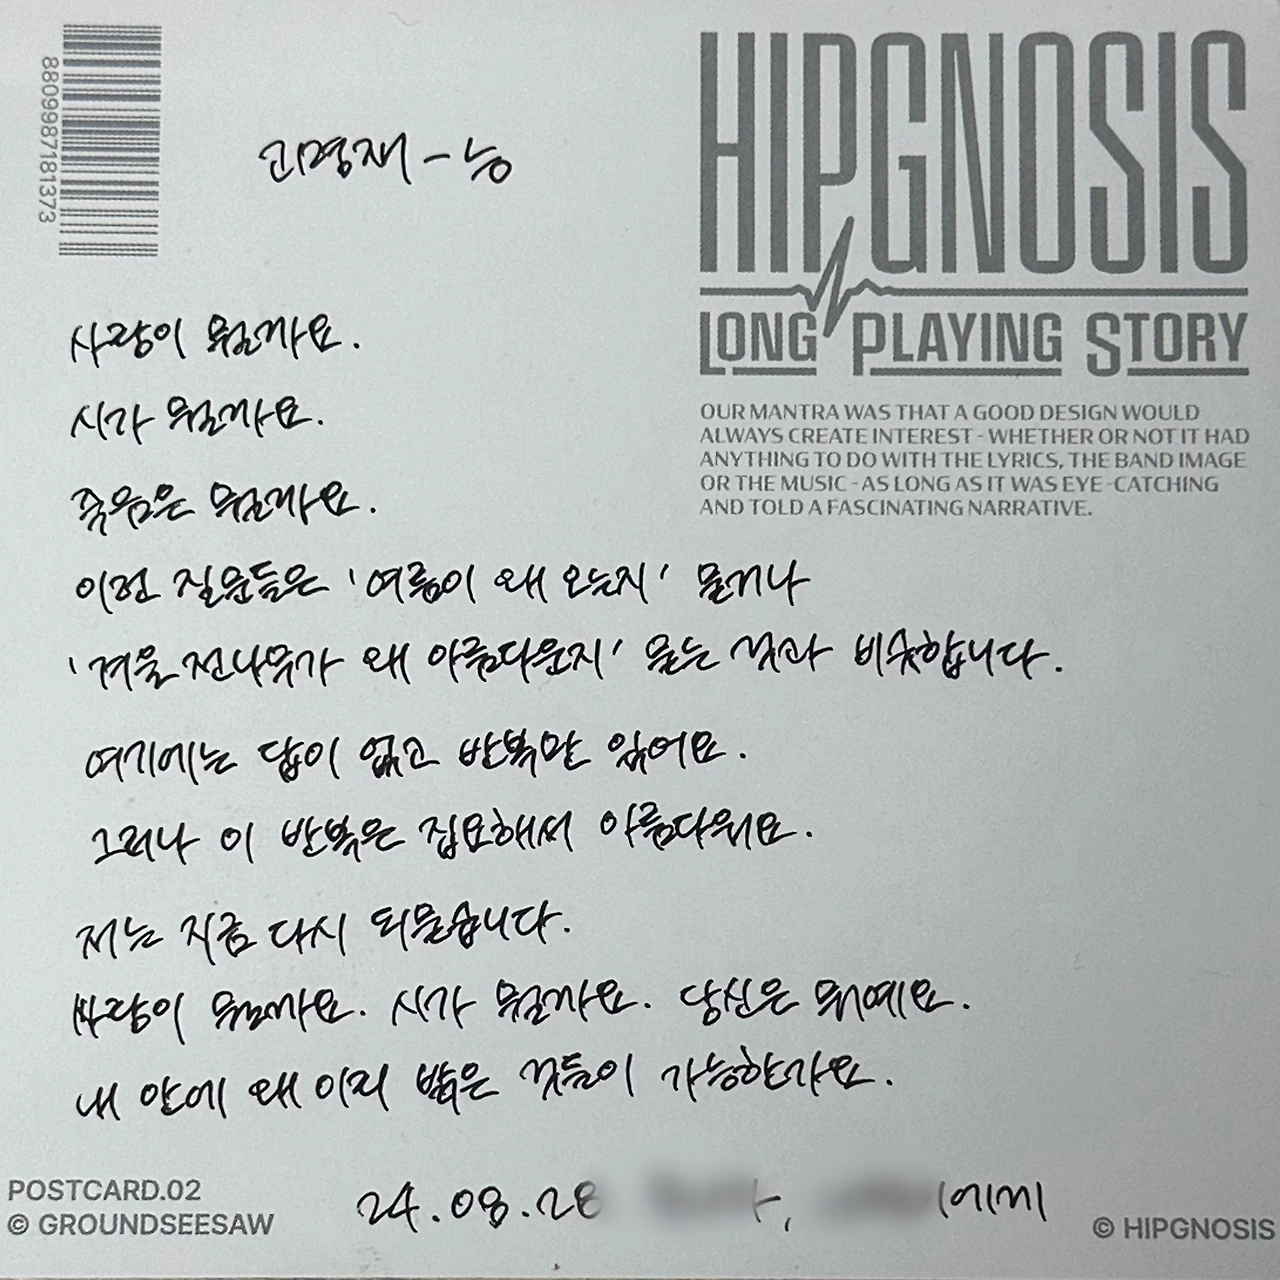 8809987181373
고명재 - 능
HIPGNOSIS
LONG PLAYING STORY
OUR MANTRA WAS THAT A GOOD DESIGN WOULD
ALWAYS CREATE INTEREST - WHETHER OR NOT IT HAD
ANYTHING TO DO WITH THE LYRICS, THE BAND IMAGE
OR THE MUSIC - AS LONG AS IT WAS EYE-CATCHING
AND TOLD A FASCINATING NARRATIVE.
사랑이 뭘까요.
시가 뭘까요.
죽음은 뭘까요.
이런 질문들은 '여름이 왜 오는지' 묻거나
'겨울 전나무가 왜 아름다운지' 묻는 것과 비슷합니다.
여기에는 답이 없고 반복만 있어요.
그러나 이 반복은 집요해서 아름다워요.
저는 지금 다시 되묻습니다.
사랑이 뭘까요. 시가 뭘까요. 당신은 뭐예요.
내 안에 왜 이리 밝은 것들이 가능한가요.
24.08.28
에게
POSTCARD.02
© GROUNDSEESAW
© HIPGNOSIS